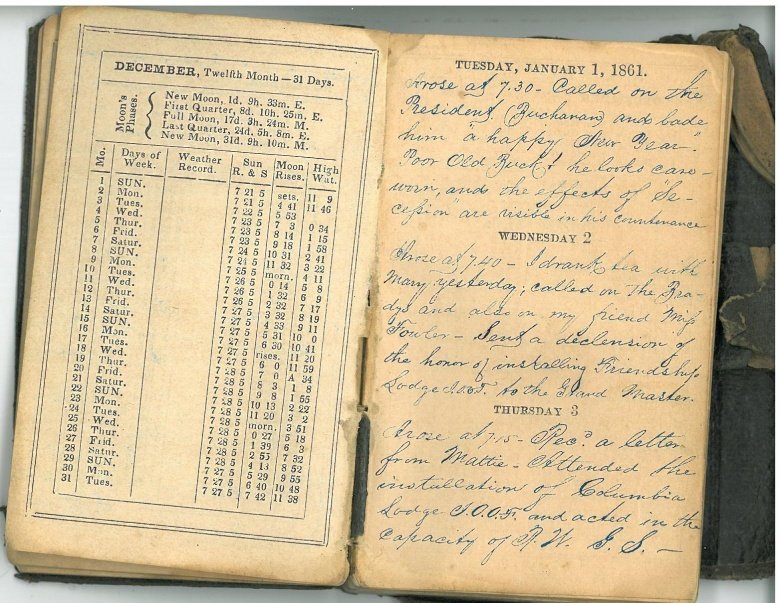 DECEMBER, Twelfth Month — 31 Days.
Moon's Phases.
New Moon, 1d. 9h. 33m. E.
First Quarter, 8d. 10h. 25m. E.
Full Moon, 17d. 3h. 24m. M.
Last Quarter, 24d. 5h. 8m. E.
New Moon, 31d. 9h. 10m. M.
Mo. Days of Week. Weather Record. Sun R. & S Moon Rises. High Wat.
1 SUN. 7 21 5 sets. 11 9
2 Mon. 7 21 5 4 41 11 46
3 Tues. 7 22 5 5 53
4 Wed. 7 23 5 7 3 0 34
5 Thur. 7 23 5 8 14 1 15
6 Frid. 7 23 5 9 18 1 58
7 Satur. 7 24 5 10 31 2 41
8 SUN. 7 24 5 11 32 3 22
9 Mon. 7 25 5 morn. 4 11
10 Tues. 7 26 5 0 14 5 8
11 Wed. 7 26 5 1 32 6 9
12 Thur. 7 26 5 2 32 7 17
13 Frid. 7 27 5 3 32 8 19
14 Satur. 7 27 5 4 33 9 11
15 SUN. 7 27 5 5 31 10 0
16 Mon. 7 27 5 6 30 10 41
17 Tues. 7 27 5 rises. 11 20
18 Wed. 7 27 5 6 0 11 59
19 Thur. 7 28 5 7 0 A 34
20 Frid. 7 28 5 8 3 1 8
21 Satur. 7 28 5 9 8 1 55
22 SUN. 7 28 5 10 13 2 22
23 Mon. 7 28 5 11 20 3 2
24 Tues. 7 28 5 morn. 3 51
25 Wed. 7 28 5 0 27 5 18
26 Thur. 7 28 5 1 39 6 3
27 Frid. 7 28 5 2 53 7 32
28 Satur. 7 28 5 4 13 8 52
29 SUN. 7 27 5 5 29 9 55
30 Mon. 7 27 5 6 40 10 48
31 Tues. 7 27 5 7 42 11 38
TUESDAY, JANUARY 1, 1861.
Arose at 7.30 - Called on the
President (Buchanan) and bade
him "a happy New Year".
Poor Old Buck! he looks care-
worn, and the effects of "Se-
cession" are visible in his countenance
WEDNESDAY 2
Arose at 7.40 - I drank tea with
Mary yesterday; called on The Bra-
dys and also on my friend Miss
Fowler - Sent a declension of
the honor of installing Friendship
Lodge I.O.O.F. to the Grand Master.
THURSDAY 3
Arose at 7.15 - Recd a letter
from Mattie - Attended the
installation of Columbia
Lodge I.O.O.F. and acted in the
capacity of R. W. G. S. -